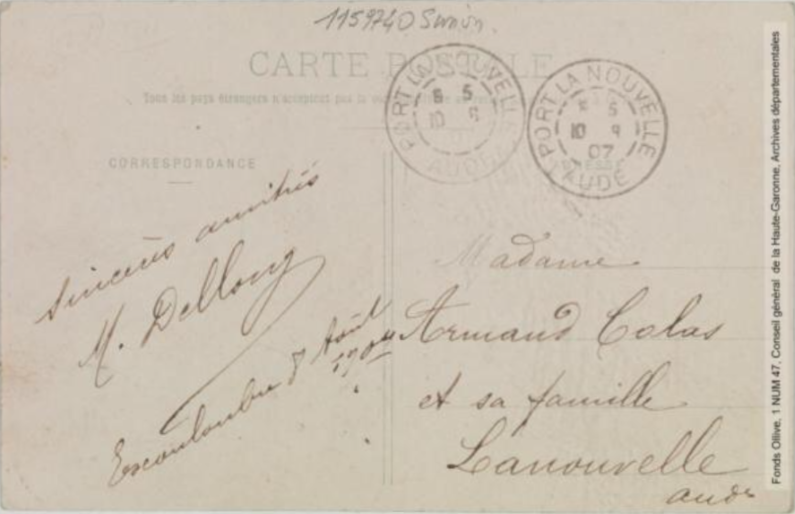 1159740 Sunion
CARTE POSTALE
Tous les pays étrangers n'acceptent pas la
CORRESPONDANCE
PORT LA NOUVELLE
8 5
10 9
AUDE
PORT LA NOUVELLE
8 5
10 9
07
AUDE
Sincères amitiés
M. Dellong
Escouloubre 8 Août
Madame
Armand Colas
et sa famille
Lanouvelle
aude
Fonds Ollive, 1 NUM 47, Conseil général de la Haute-Garonne, Archives départementales